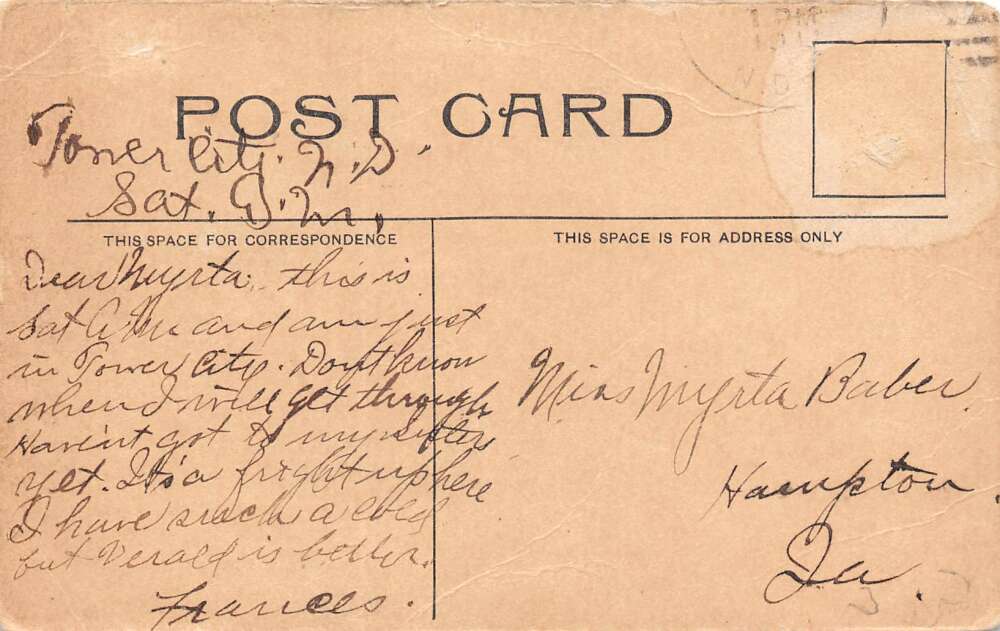 1 PM
POST CARD
Tower City. N.D.
Sat. P.M.
THIS SPACE FOR CORRESPONDENCE
THIS SPACE IS FOR ADDRESS ONLY
Dear Myrta, this is
Sat A.M. and am just
in Tower City. Dont know
when I will get through
Haven't got to my sisters
yet. Its a fright up here
I have such a cold
but Verald is better.
Frances.
Miss Myrta Baber
Hampton.
Ia.